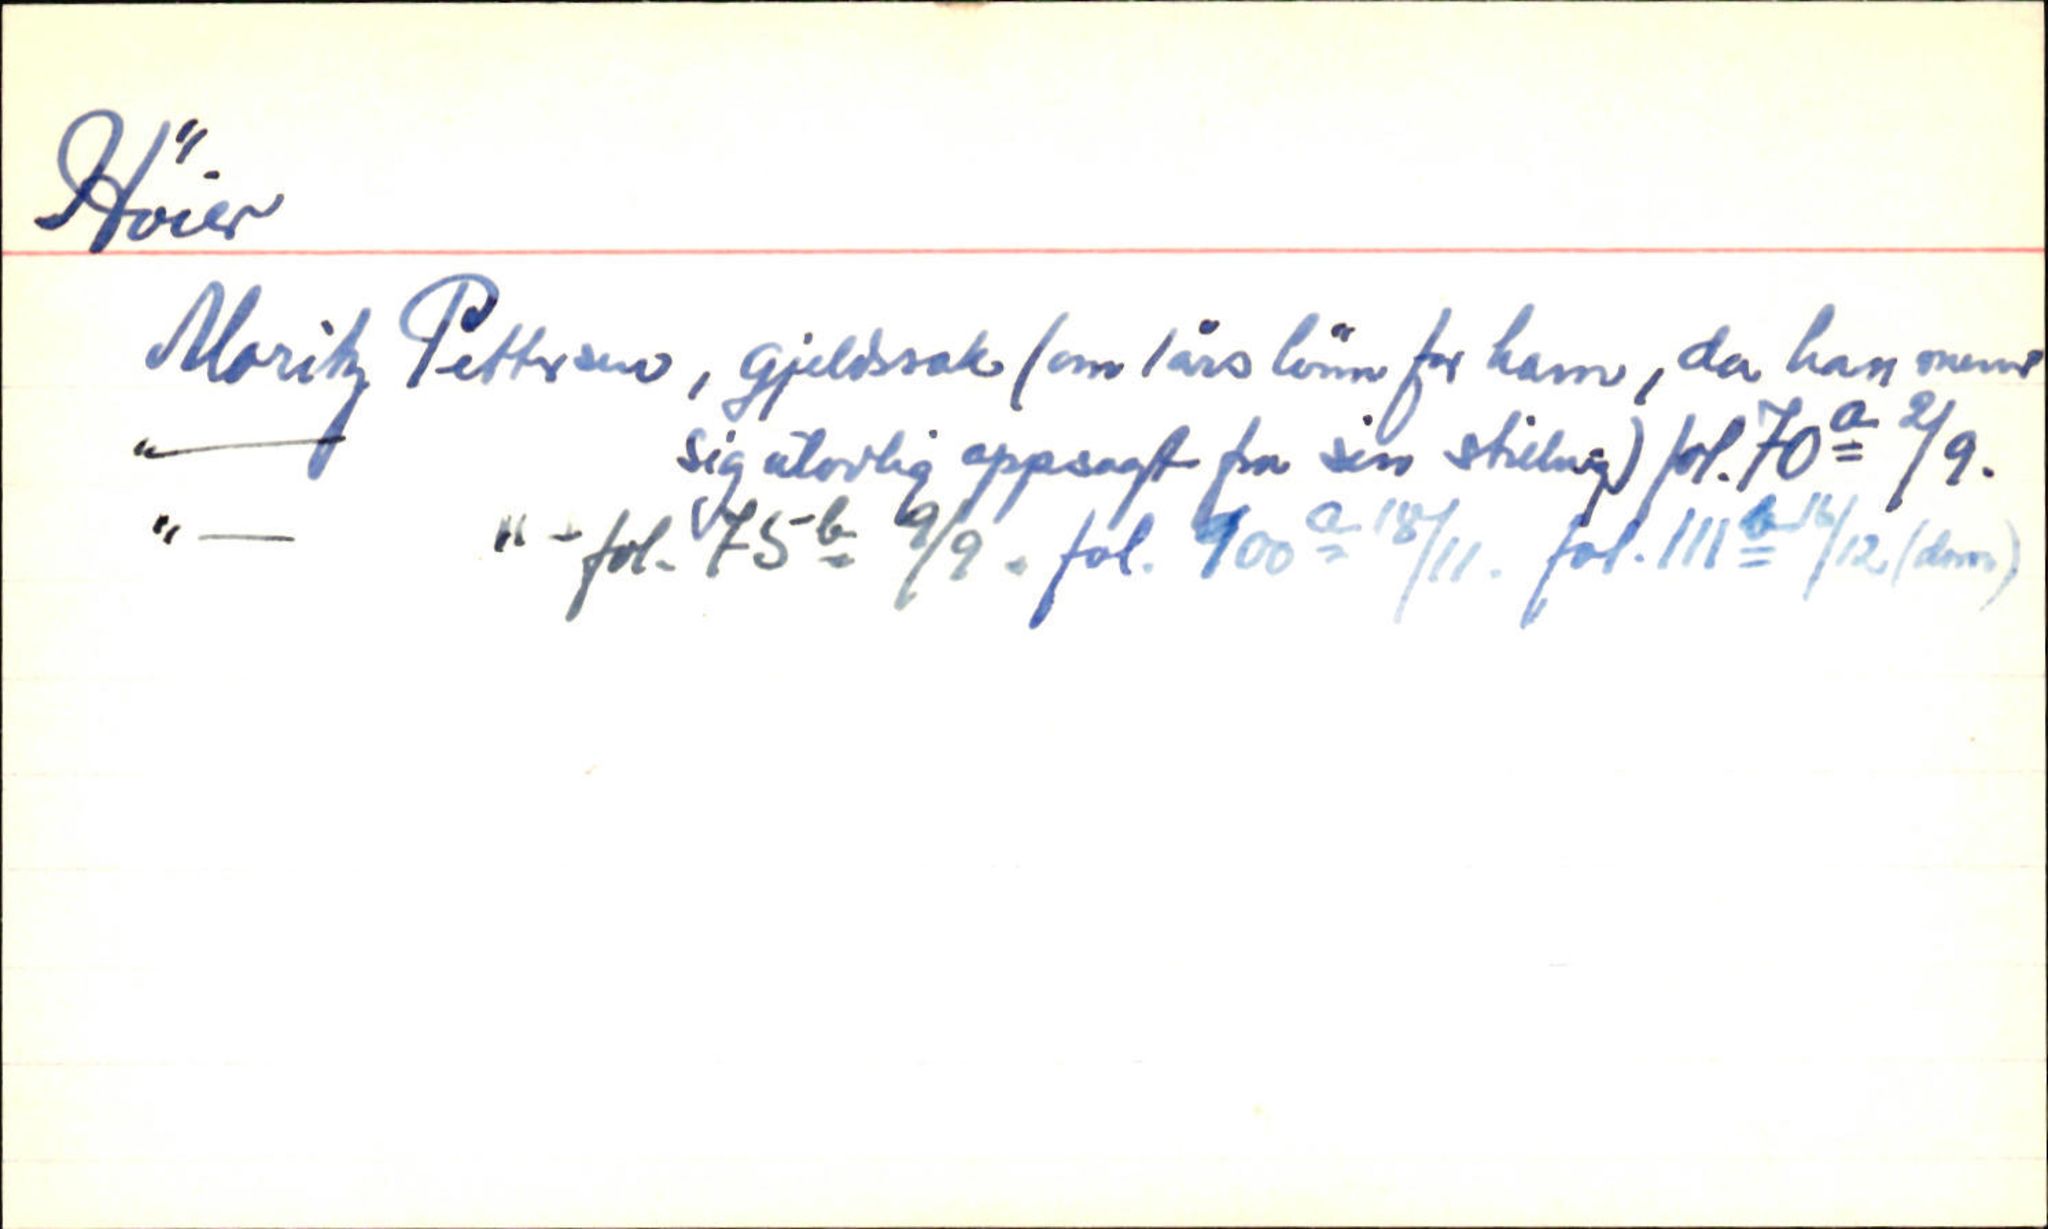 Höier
Moritz Pettersen, gjeldssak (om 1 års lönn for ham, da han mener
"— sig ulovlig oppsagt fra sin stilling) fol. 70a 2/9.
"— "— fol. 75b 9/9. fol. 100a 18/11. fol. 111b 16/12 (dom)